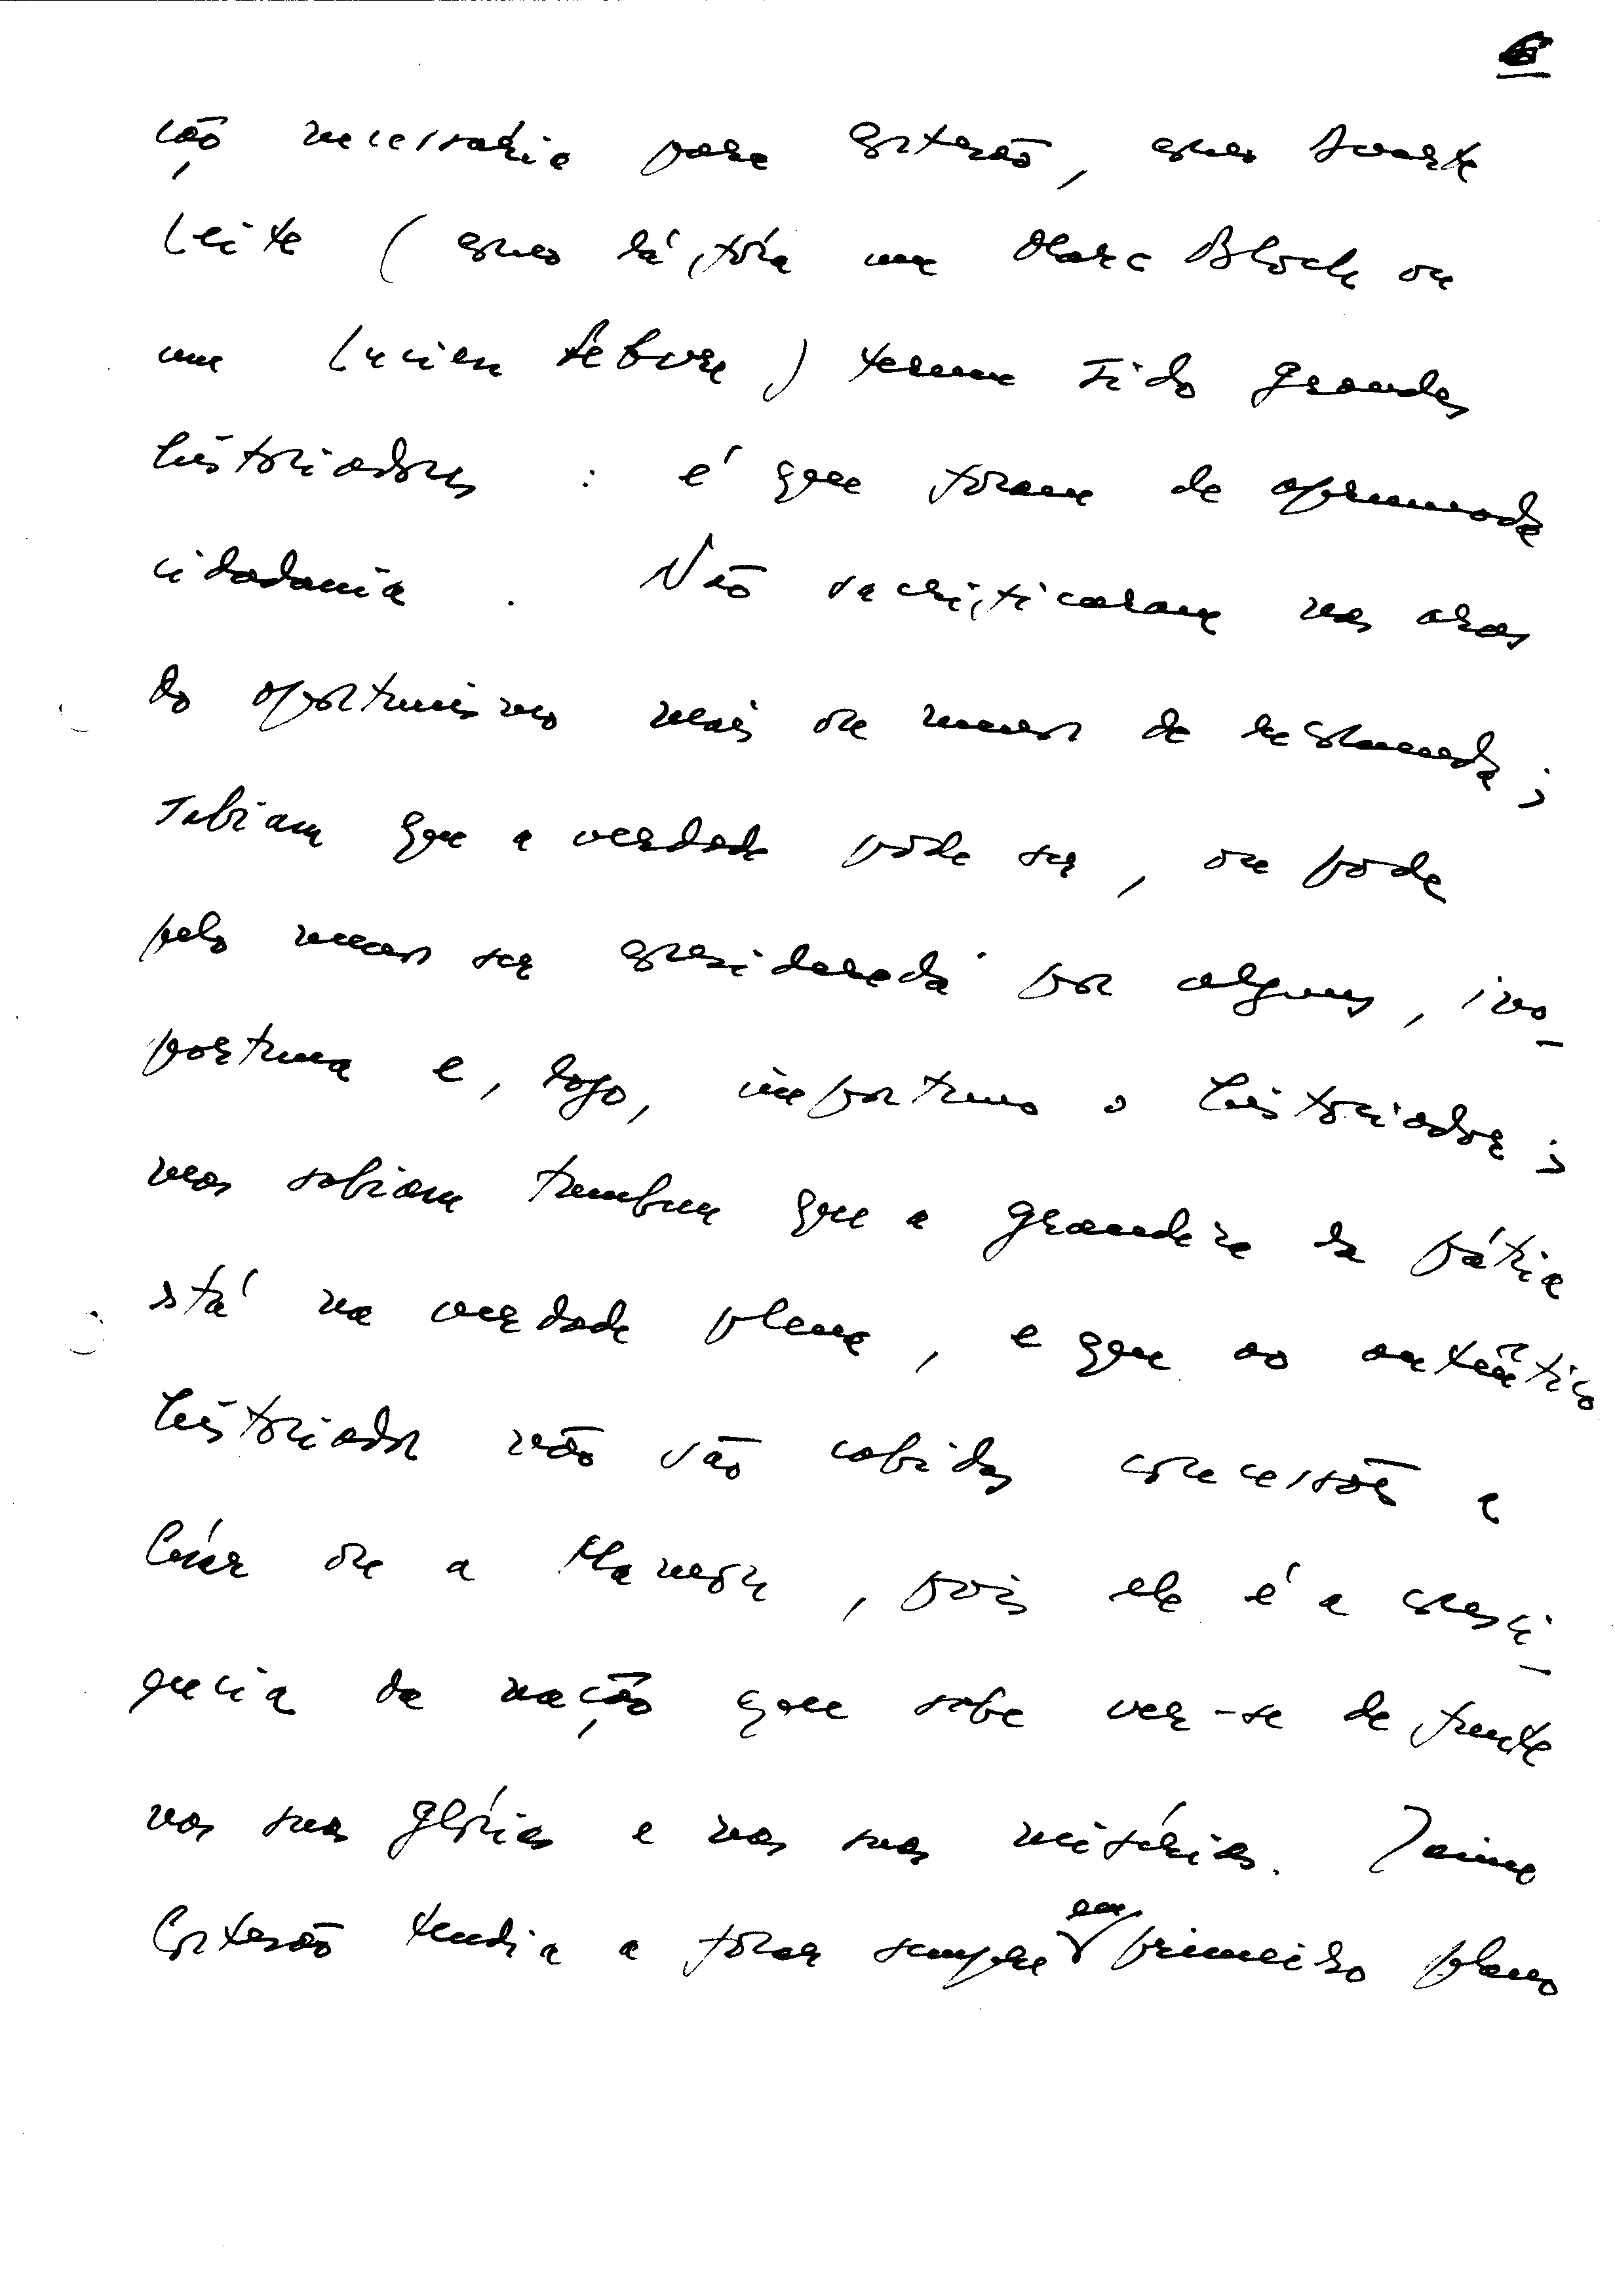 6
ção necessária para Cortesão, como Duarte
Leite (como lá fóra um Marc Bloch ou
um Lucien Febvre) terem sido grandes
historiadores : é que foram de aprumada
cidadania. Não sacrificaram nas aras
do oportunismo mais ou menos de
sabiam que a verdade pode ser, ou pode
pelo menos ser considerada por alguns, ino-
portuna e, logo, importuno o historiador;
mas sabiam tambem que a grandeza da pátria
stá na verdade plena, e que ao autêntico
historiador não são cabidas concessões a
César ou a Mamon, pois ele é a consci-
encia da nação que sabe ver-se de frente
nas suas glórias e nas suas misérias. Jaime
Cortesão tendia a focar sempre em primeiro plano